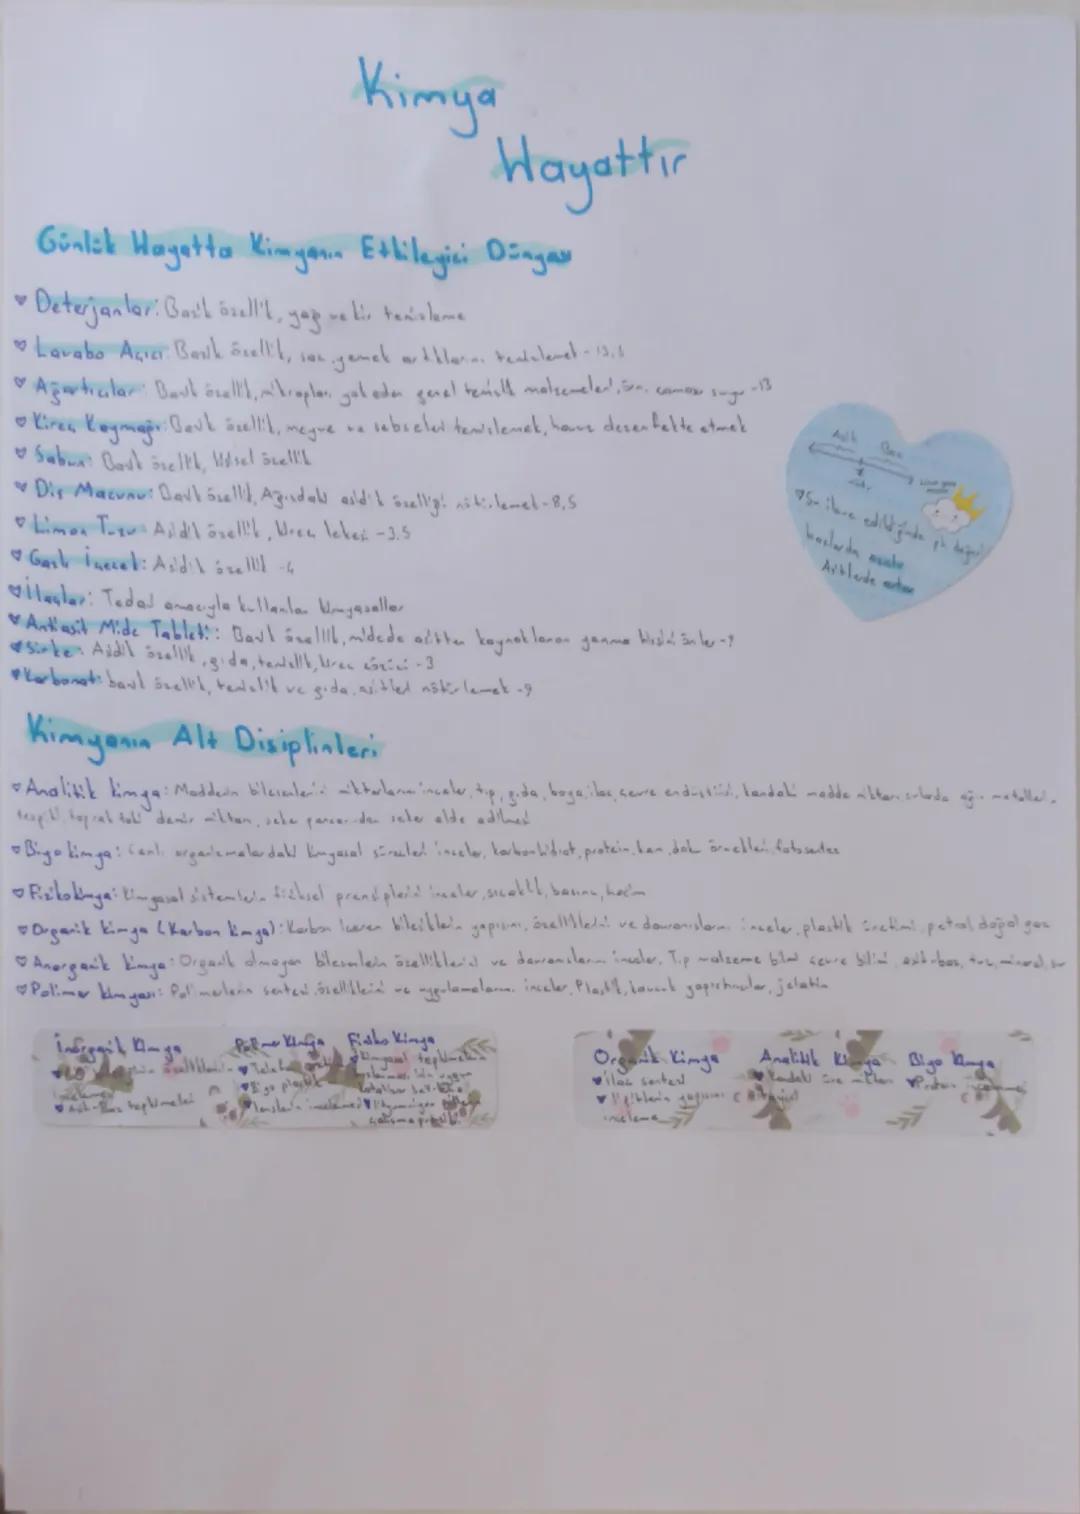 Kimya
Hayattır
Günlük Hayatta Kimyanın Etkileyici Dünyası
Deterjanlar: Bazik özellik, yağ ve kir temizleme
Lavabo Açıcı: Bazik özellik, saç, yemek artıklarını temizlemek - 13,5
Ağartıcılar: Bazik özellik, mikropları yok eden genel temizlik malzemeleri, örn. çamaşır suyu -13
Kireç Kaymağı: Bazik özellik, meyve ve sebzeleri temizlemek, havuz dezenfekte etmek
Sabun: Bazik özellik,
Diş Macunu: Bazik özellik, Ağızdaki asidik özelliği nötrlemek - 8,5
Limon Tuzu: Asidik özellik, kireç lekesi - 3.5
Gazlı İçecek: Asidik özellik - 4
İlaçlar: Tedavi amacıyla kullanılan kimyasallar
Antiasit Mide Tableti: Bazik özellik, midede asitten kaynaklanan yanma hissini önler -9
Sirke: Asidik özellik, gıda, temizlik, kireç çözücü - 3
Karbonat: bazik özellik, temizlik ve gıda, asitleri nötrlemek - 9
Asit Baz
nötr
Su ilave edildiğinde ph değeri
bazlarda azalır
Asitlerde artar
Kimyanın Alt Disiplinleri
Analitik kimya: Maddenin bileşenlerini miktarlarını inceler, tıp, gıda, boya, ilaç, çevre endüstrisi, kandaki madde miktarı, sularda ağır metallerin
tespiti, topraktaki demir miktarı, şeker pancarından şeker elde edilmesi
Biyokimya: Canlı organizmalardaki kimyasal süreçleri inceler, karbonhidrat, protein, kan, doku örnekleri, fotosentez
Fizikokimya: Kimyasal sistemlerin fiziksel prensiplerini inceler, sıcaklık, basınç, hacim
Organik kimya (Karbon kimya): Karbon içeren bileşiklerin yapısını, özelliklerini ve davranışlarını inceler, plastik üretimi, petrol, doğal gaz
Anorganik kimya: Organik olmayan bileşenlerin özelliklerini ve davranışlarını inceler. Tıp malzeme bilimi çevre bilimi, asit, baz, tuz, mineral, su
Polimer kimyası: Polimerlerin sentezi, özelliklerini ve uygulamalarını inceler, Plastik, kauçuk yapıştırıcılar, jelatin
İnorganik Kimya Polimer Kimya Fiziko Kimya
özelliklerin Kimyasal tepkimelerin
inceleme Biyo plastik uygun
Asit-Baz tepkimeleri
Organik Kimya Analitik Kimya Biyo Kimya
ilaç sentezi Kandaki üre miktarı Protein
yapısını
inceleme